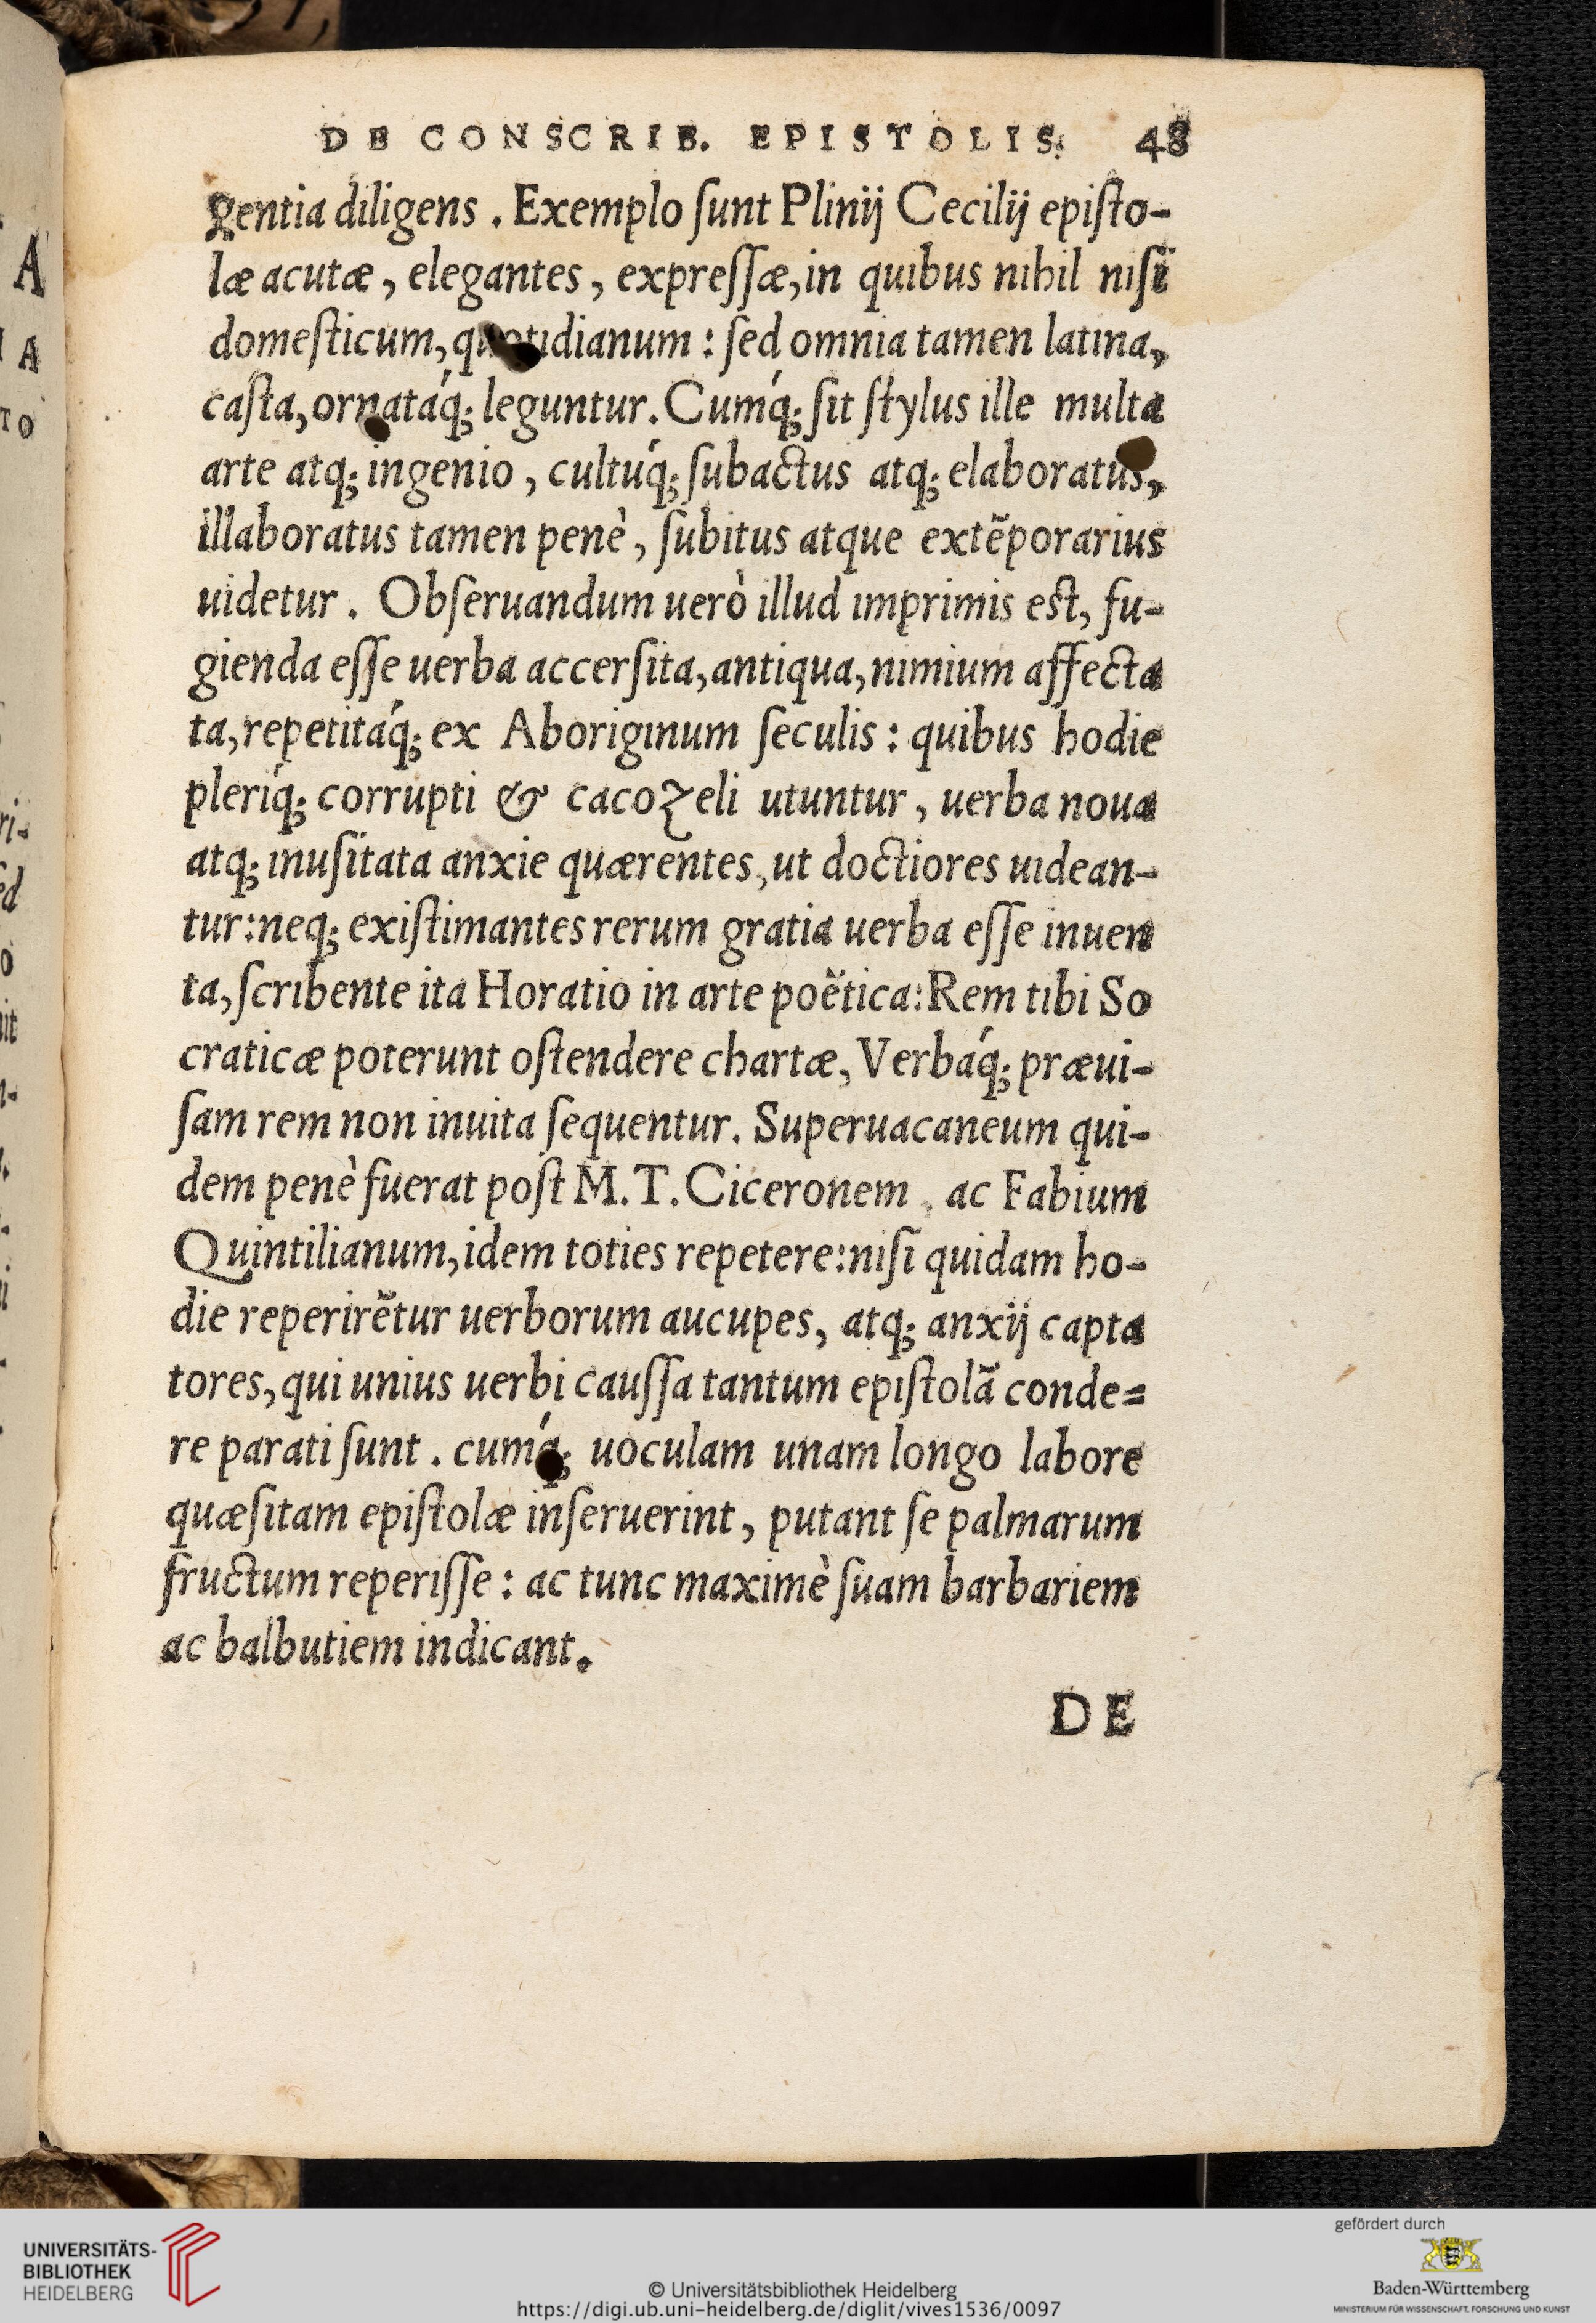 DE CONSCRIB. EPISTOLIS. 48
gentia diligens . Exemplo ſunt Plinij Cecilij epiſto-
læ acutæ , elegantes , expreſſæ, in quibus nihil niſi
domeſticum, quotidianum : ſed omnia tamen latina,
caſta, ornatáq; leguntur. Cumq́; ſit ſtylus ille multa
arte atq; ingenio , cultuq́; ſubactus atq; elaboratus,
illaboratus tamen penè , ſubitus atque extẽporarius
uidetur . Obſeruandum uerò illud imprimis est, fu-
gienda eſſe uerba accerſita, antiqua, nimium affecta
ta, repetitáq; ex Aboriginum ſeculis : quibus hodie
pleriq́; corrupti & cacozeli utuntur , uerba noua
atq; inuſitata anxie quærentes, ut doctiores uidean-
tur: neq; exiſtimantes rerum gratia uerba eſſe inuen
ta, ſcribente ita Horatio in arte poëtica: Rem tibi So
craticæ poterunt oſtendere chartæ, Verbáq; præui-
ſam rem non inuita ſequentur. Superuacaneum qui-
dem penè fuerat poſt M. T. Ciceronem , ac Fabium
Quintilianum, idem toties repetere: niſi quidam ho-
die reperirẽtur uerborum aucupes, atq; anxij capta
tores, qui unius uerbi cauſſa tantum epiſtolã conde=
re parati ſunt . cumq́; uoculam unam longo labore
quæſitam epiſtolæ inſeruerint , putant ſe palmarum
fructum reperiſſe : ac tunc maximè ſuam barbariem
ac balbutiem indicant.
DE
A
A
TO
ri-
ed
o
it
n-
UNIVERSITÄTS-
BIBLIOTHEK
HEIDELBERG
© Universitätsbibliothek Heidelberg
https://digi.ub.uni-heidelberg.de/diglit/vives1536/0097
gefördert durch
Baden-Württemberg
MINISTERIUM FÜR WISSENSCHAFT, FORSCHUNG UND KUNST